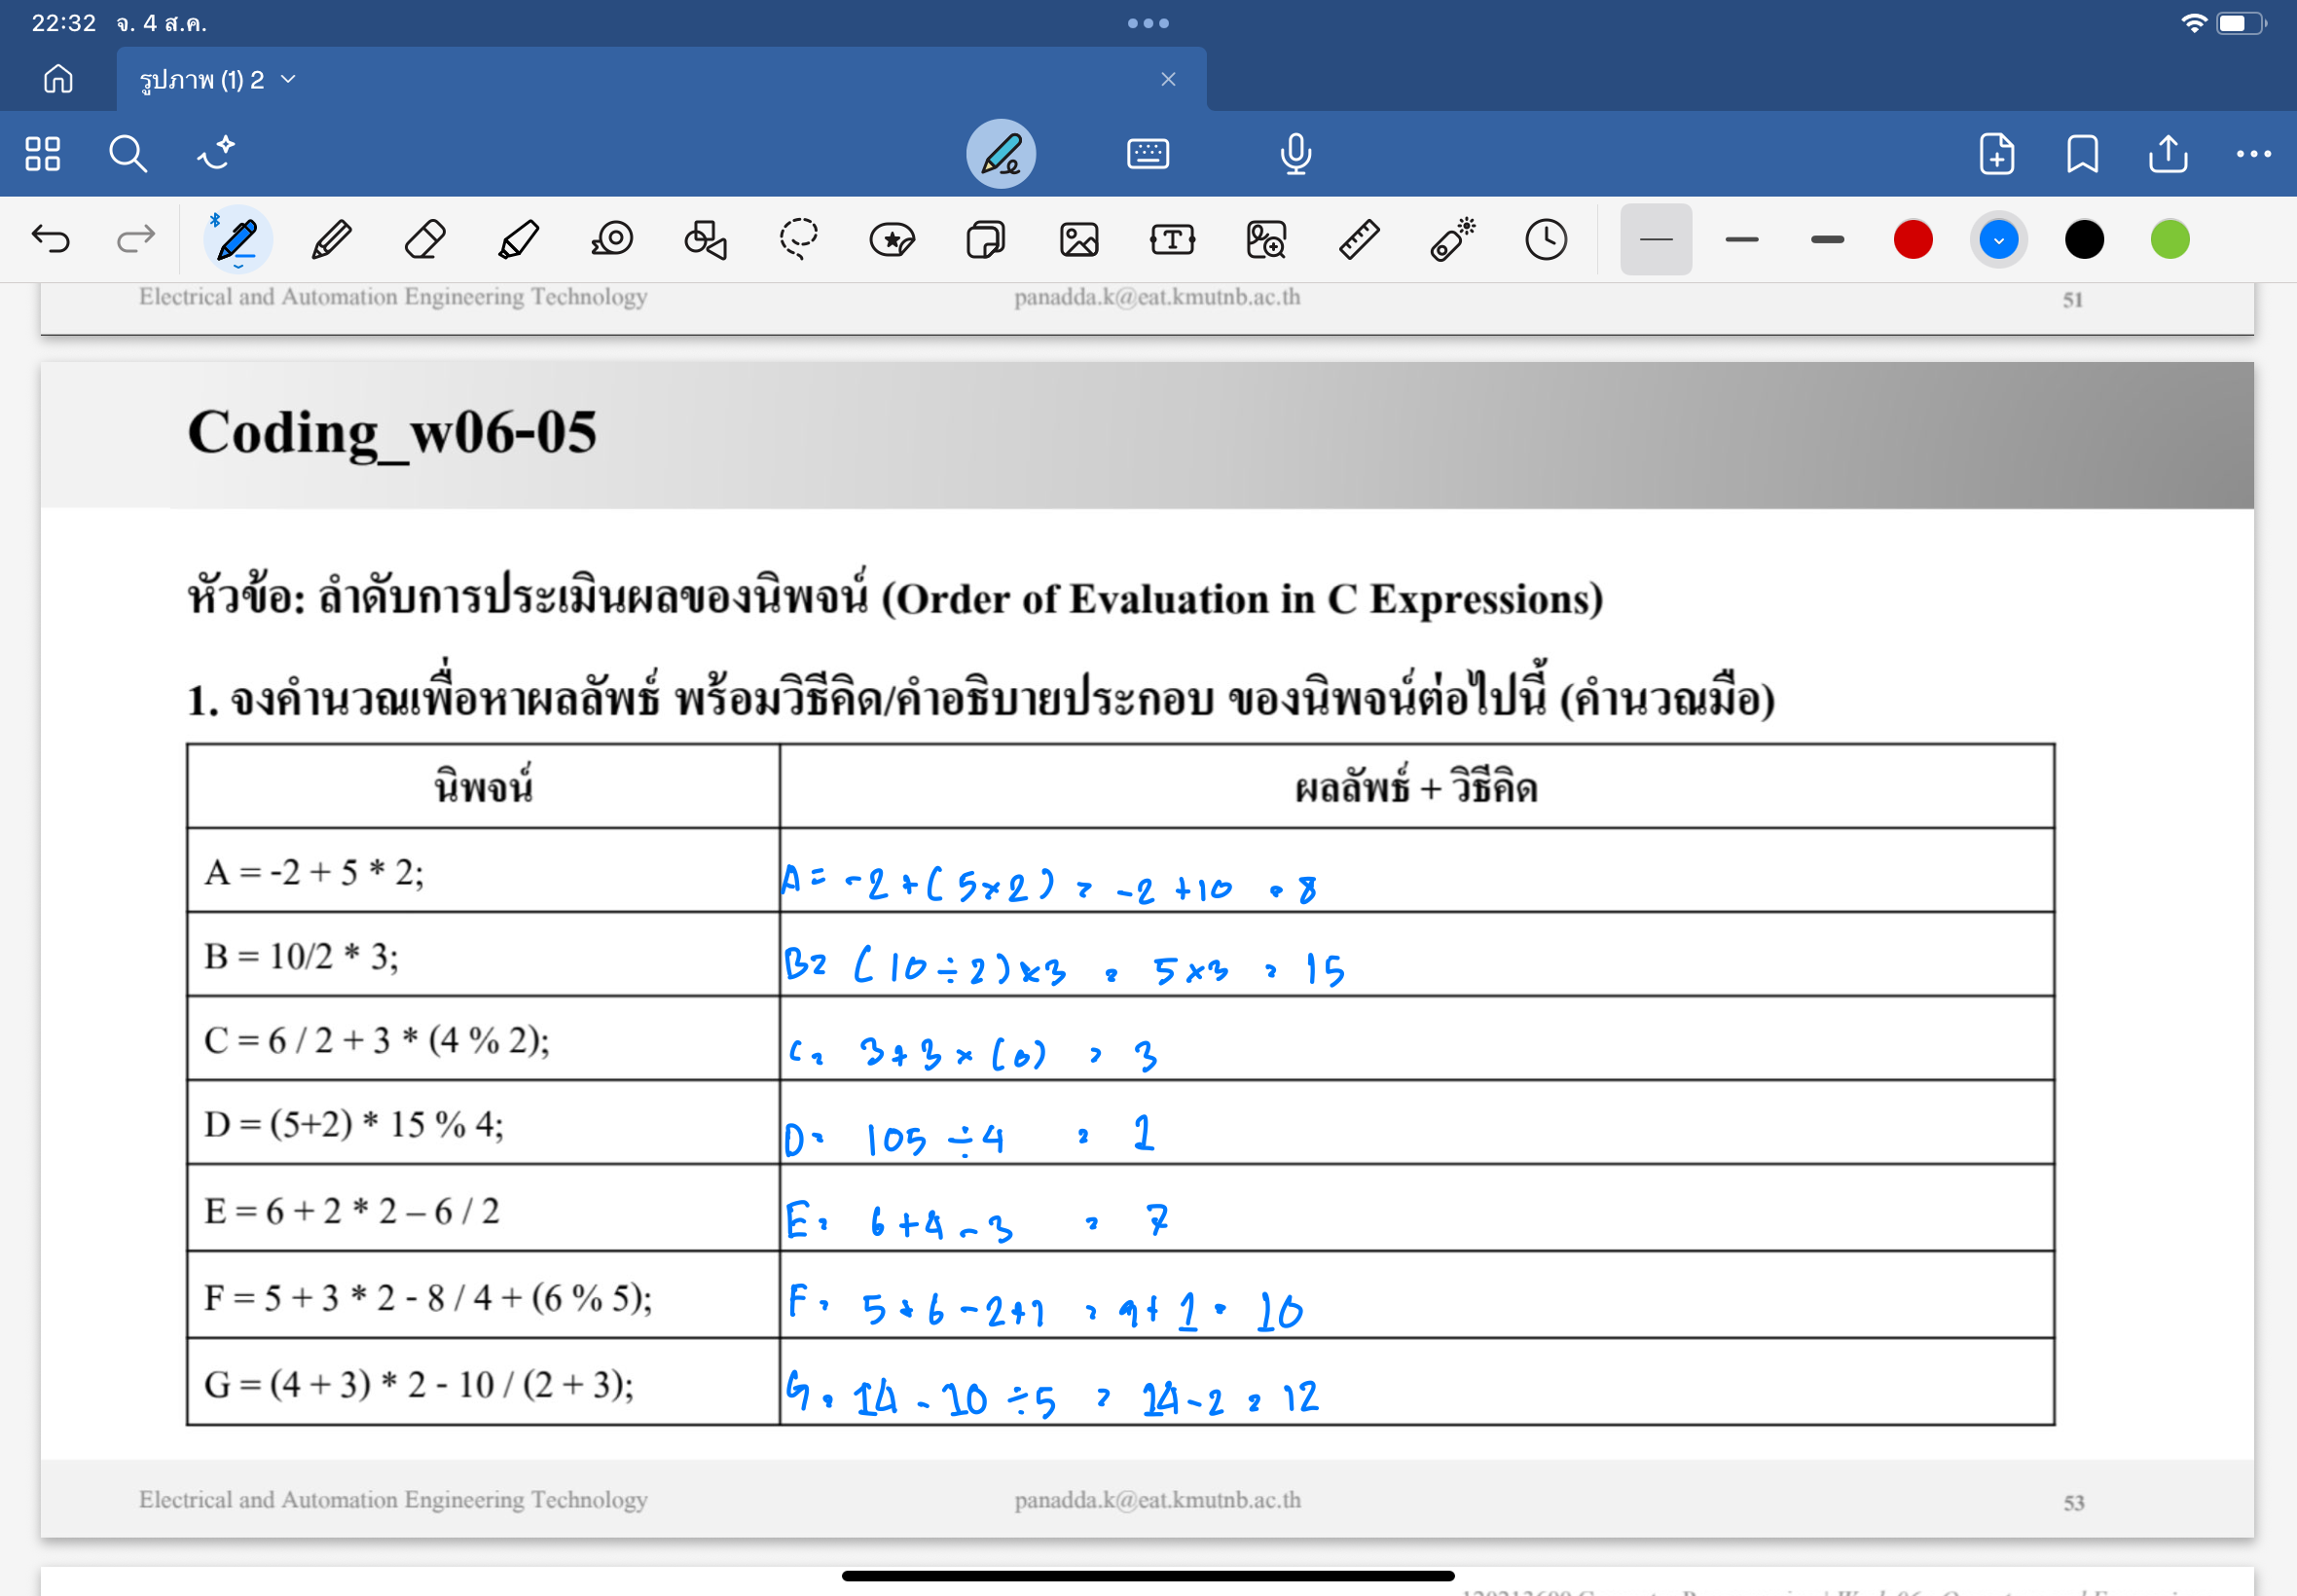 22:32 จ. 4 ส.ค.
รูปภาพ (1) 2
Electrical and Automation Engineering Technology panadda.k@eat.kmutnb.ac.th 51
Coding_w06-05
หัวข้อ: ลำดับการประเมินผลของนิพจน์ (Order of Evaluation in C Expressions)
1. จงคำนวณเพื่อหาผลลัพธ์ พร้อมวิธีคิด/คำอธิบายประกอบ ของนิพจน์ต่อไปนี้ (คำนวณมือ)
นิพจน์ ผลลัพธ์ + วิธีคิด
A = -2 + 5 * 2; A = -2 + (5×2) = -2 +10 = 8
B = 10/2 * 3; B = (10÷2)×3 = 5×3 = 15
C = 6 / 2 + 3 * (4 % 2); C = 3+3×(0) = 3
D = (5+2) * 15 % 4; D = 105 ÷ 4 = 1
E = 6 + 2 * 2 – 6 / 2 E = 6+4-3 = 7
F = 5 + 3 * 2 - 8 / 4 + (6 % 5); F = 5+6-2+1 = 9+1 = 10
G = (4 + 3) * 2 - 10 / (2 + 3); G = 14 - 10 ÷5 = 14-2 = 12
Electrical and Automation Engineering Technology panadda.k@eat.kmutnb.ac.th 53